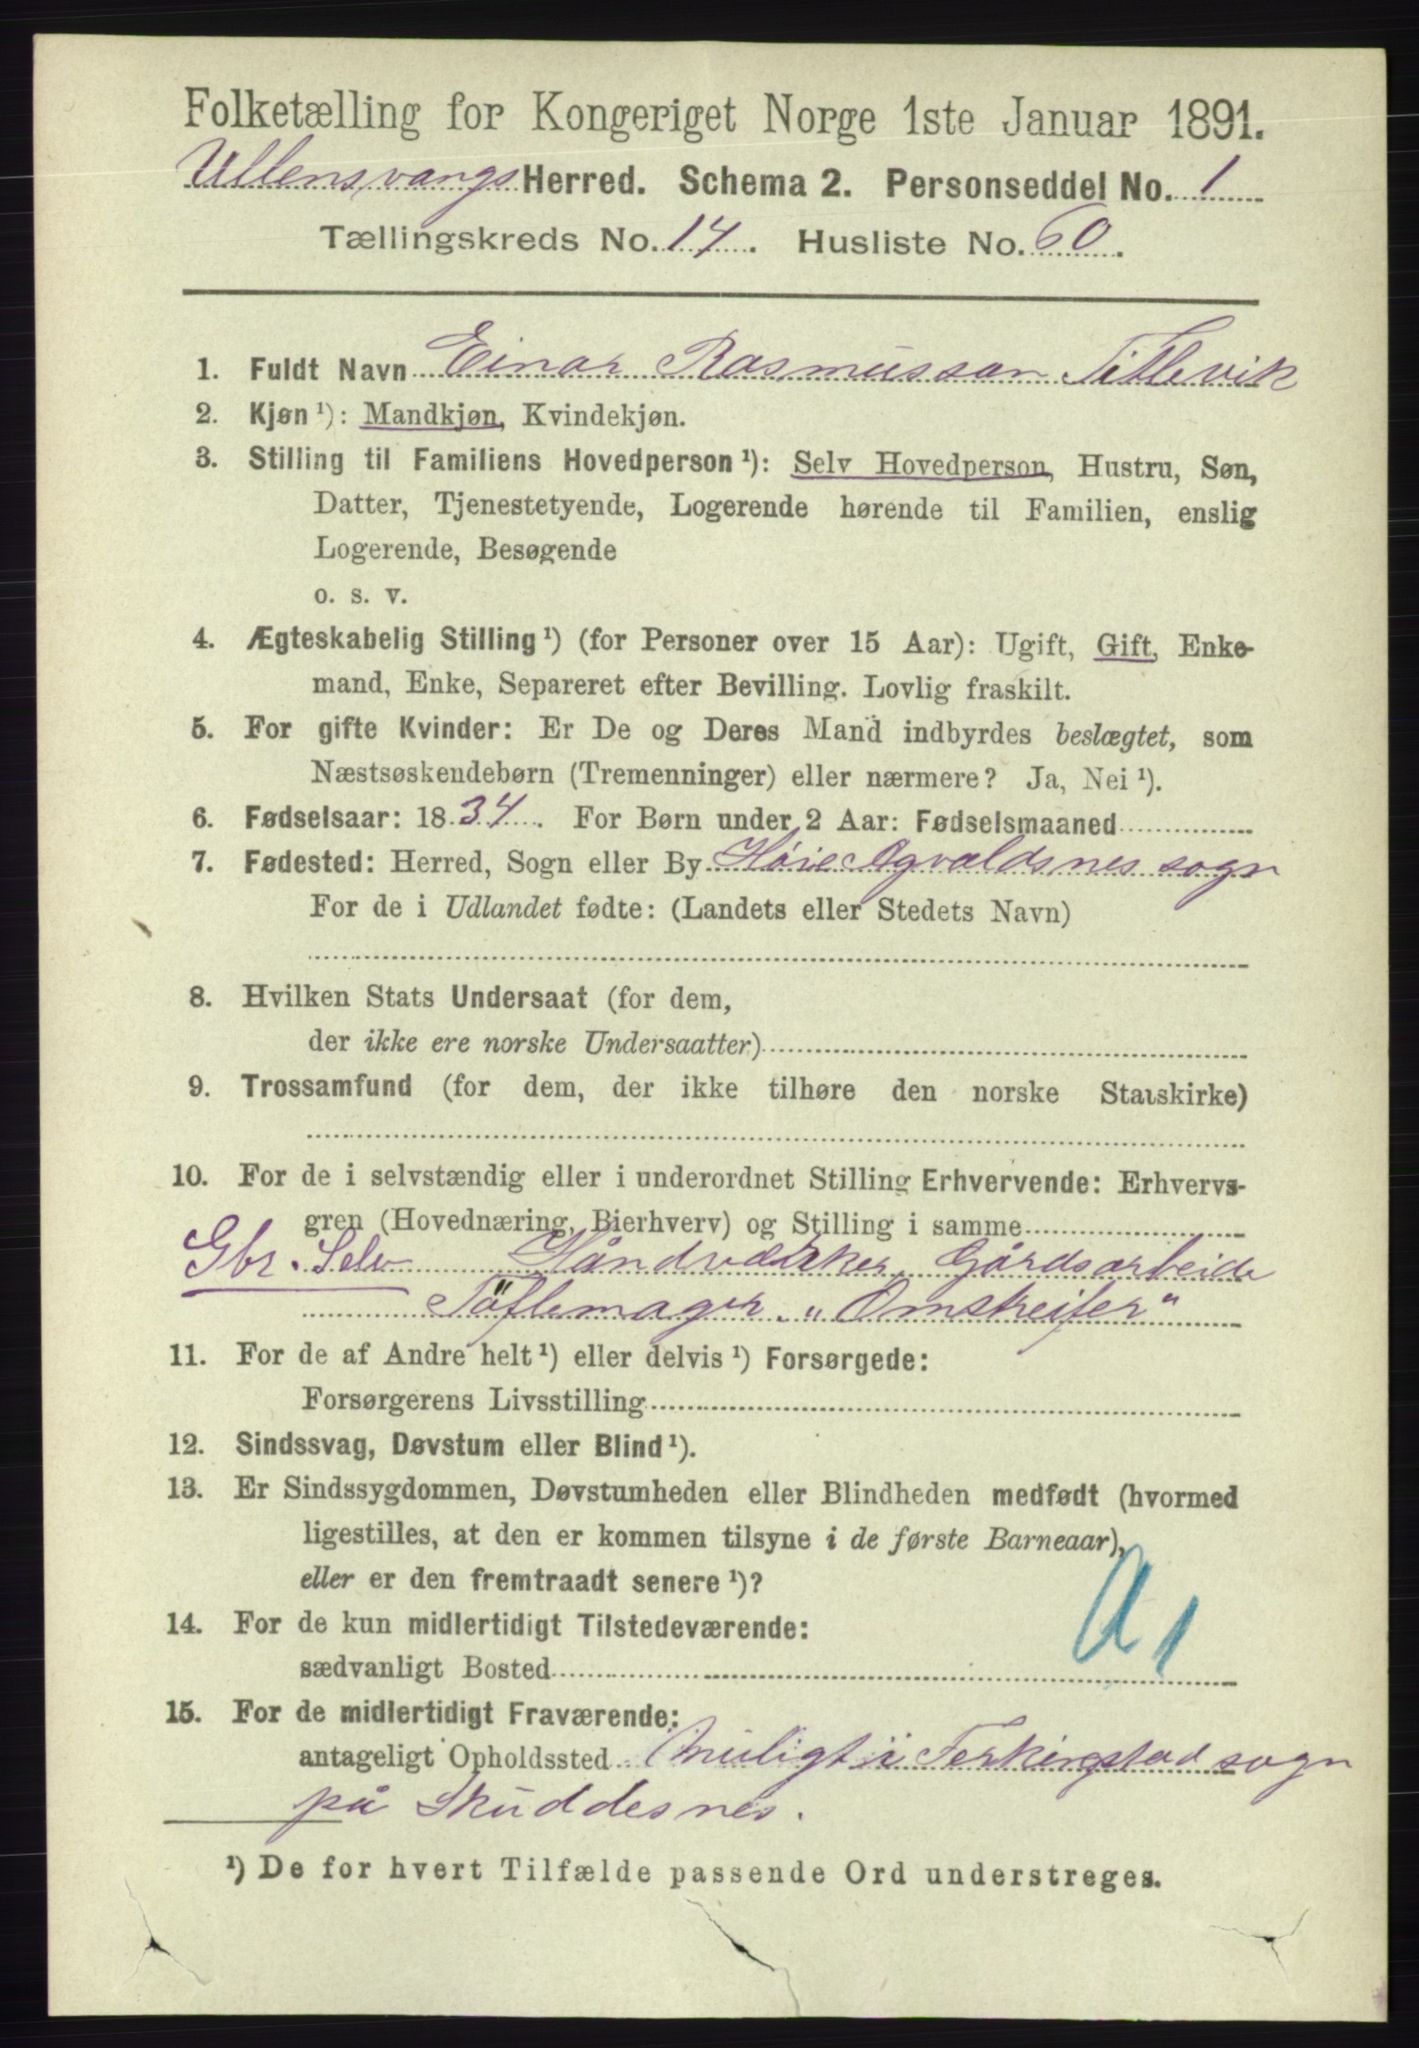 Folketælling for Kongeriget Norge 1ste Januar 1891.
Ullensvangs Herred. Schema 2. Personseddel No. 1
Tællingskreds No. 14. Husliste No. 60.
1. Fuldt Navn Einar Rasmussen Titlevik
2. Kjøn ¹): Mandkjøn, Kvindekjøn.
3. Stilling til Familiens Hovedperson ¹): Selv Hovedperson, Hustru, Søn,
Datter, Tjenestetyende, Logerende hørende til Familien, enslig
Logerende, Besøgende
o. s. v.
4. Ægteskabelig Stilling ¹) (for Personer over 15 Aar): Ugift, Gift, Enke-
mand, Enke, Separeret efter Bevilling. Lovlig fraskilt.
5. For gifte Kvinder: Er De og Deres Mand indbyrdes beslægtet, som
Næstsøskendebørn (Tremenninger) eller nærmere? Ja, Nei ¹).
6. Fødselsaar: 1834. For Børn under 2 Aar: Fødselsmaaned
7. Fødested: Herred, Sogn eller By Høie Agvaldsnes sogn
For de i Udlandet fødte: (Landets eller Stedets Navn)
8. Hvilken Stats Undersaat (for dem,
der ikke ere norske Undersaatter)
9. Trossamfund (for dem, der ikke tilhøre den norske Statskirke)
10. For de i selvstændig eller i underordnet Stilling Erhvervende: Erhvervs-
gren (Hovednæring, Bierhverv) og Stilling i samme
Gbr. Selv Håndværker, Gårdsarbeide
Töflemager. "Omstreifer"
11. For de af Andre helt ¹) eller delvis ¹) Forsørgede:
Forsørgerens Livsstilling
12. Sindssvag, Døvstum eller Blind ¹).
13. Er Sindssygdommen, Døvstumheden eller Blindheden medfødt (hvormed
ligestilles, at den er kommen tilsyne i de første Barneaar),
eller er den fremtraadt senere ¹)?
14. For de kun midlertidigt Tilstedeværende:
sædvanligt Bosted
15. For de midlertidigt Fraværende:
antageligt Opholdssted muligt i Ferkingstad sogn
på Skuddesnes.
¹) De for hvert Tilfælde passende Ord understreges.